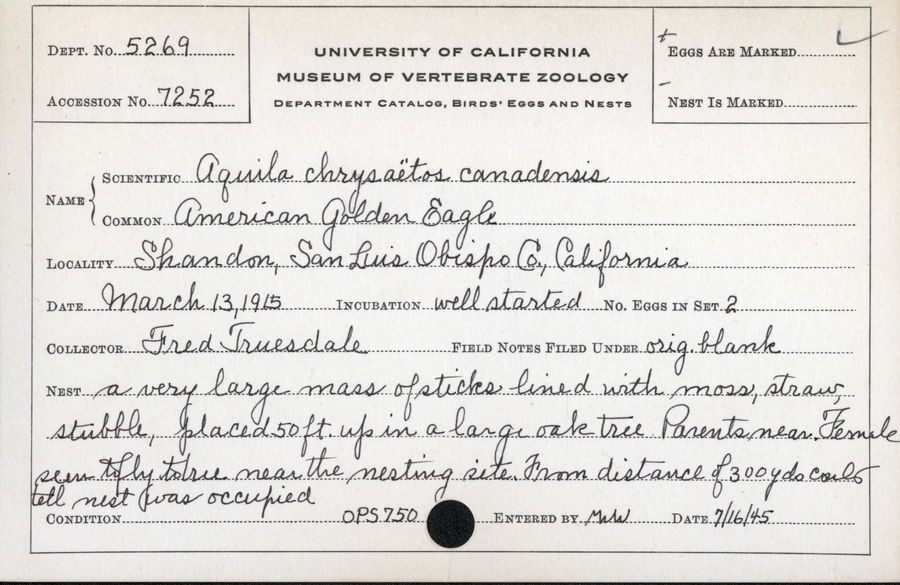 DEPT. No. 5269
ACCESSION No. 7252
UNIVERSITY OF CALIFORNIA
MUSEUM OF VERTEBRATE ZOOLOGY
DEPARTMENT CATALOG, BIRDS' EGGS AND NESTS
+ EGGS ARE MARKED ✓
- NEST IS MARKED
NAME { SCIENTIFIC Aquila chrysaëtos canadensis
COMMON American Golden Eagle
LOCALITY Shandon, San Luis Obispo Co., California
DATE March 13, 1915 INCUBATION well started No. EGGS IN SET 2
COLLECTOR Fred Truesdale FIELD NOTES FILED UNDER orig. blank
NEST a very large mass of sticks lined with moss, straw,
stubble, placed 50 ft. up in a large oak tree Parents near. Female
seen to fly to tree near the nesting site. From distance of 300 yds could
tell nest was occupied
CONDITION OPS 750 ENTERED BY MWW DATE 7/16/45